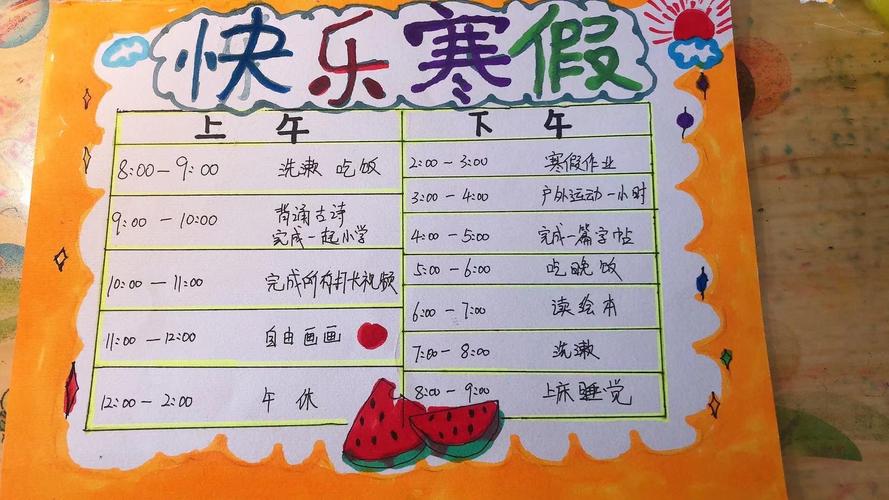 快乐寒假
上午
8:00—9:00 洗漱 吃饭
9:00—10:00 背诵古诗
完成一起小学
10:00—11:00 完成所有打卡视频
11:00—12:00 自由画画
12:00—2:00 午休
下午
2:00—3:00 寒假作业
3:00—4:00 户外运动一小时
4:00—5:00 完成一篇字帖
5:00—6:00 吃晚饭
6:00—7:00 读绘本
7:00—8:00 洗漱
8:00—9:00 上床睡觉